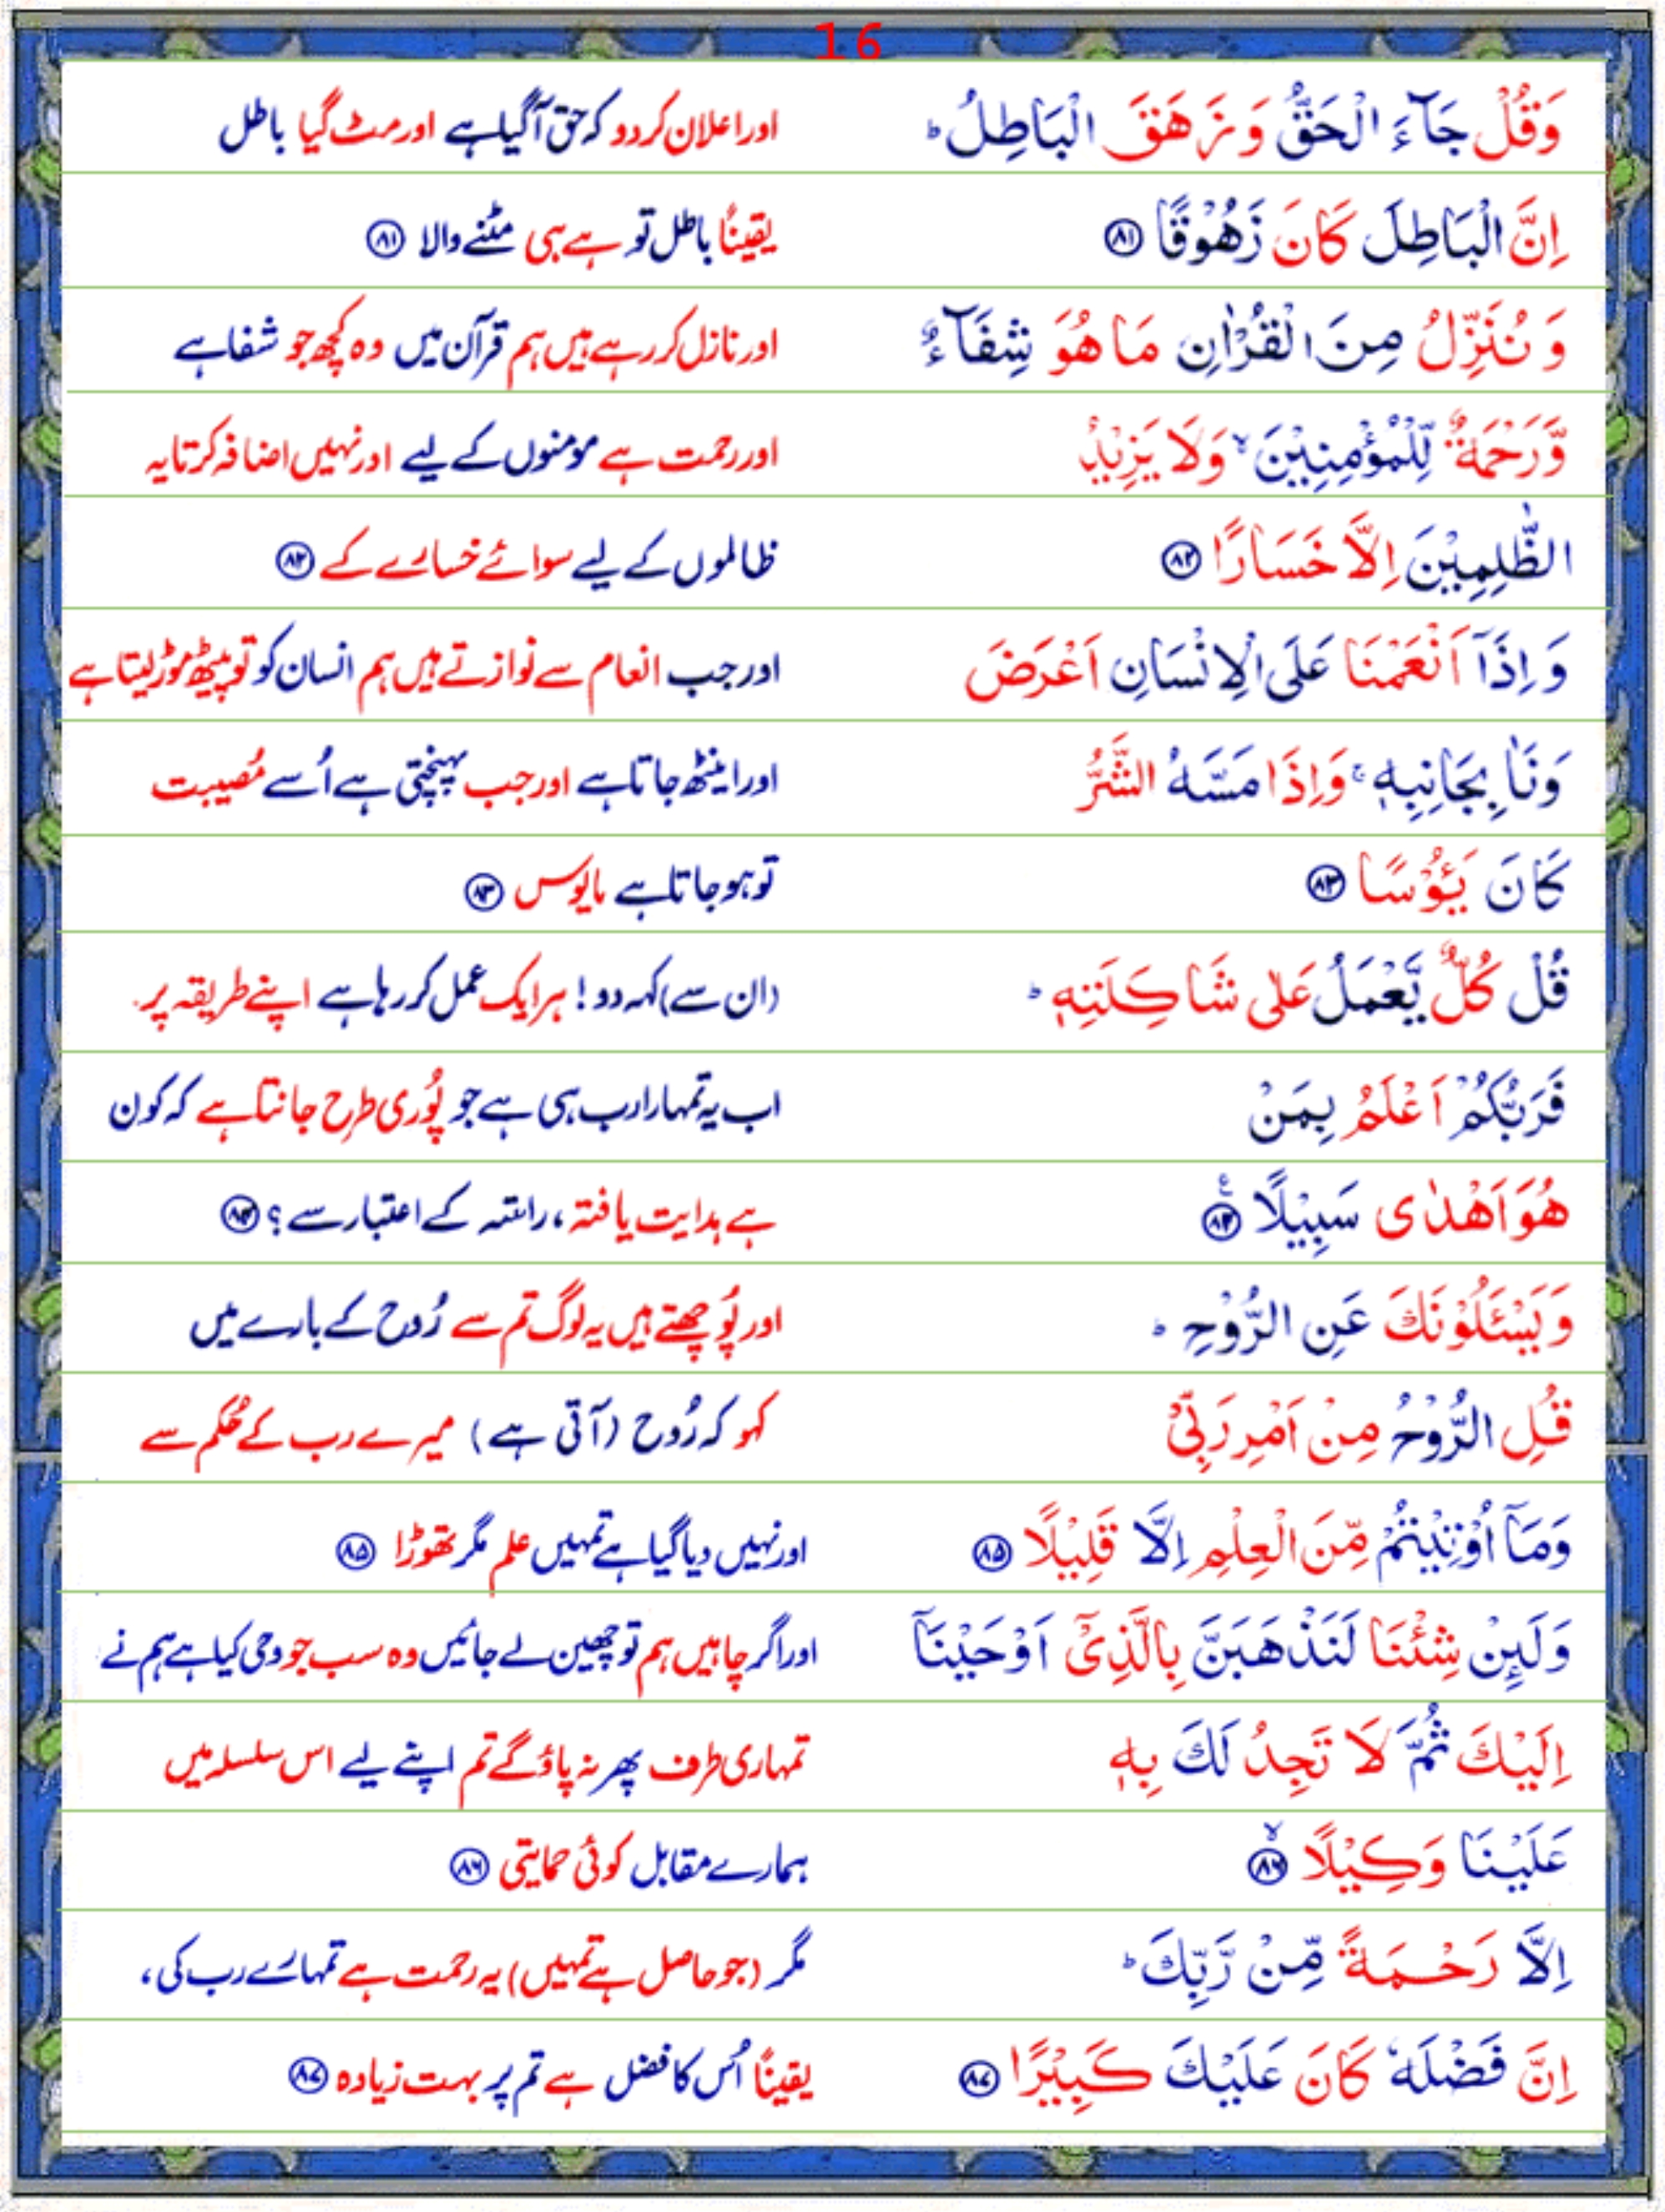 16
وَقُلْ جَآءَ الْحَقُّ وَ زَهَقَ الْبَاطِلُ ؕ اور اعلان کردو کہ حق آگیا ہے اور مٹ گیا باطل
اِنَّ الْبَاطِلَ كَانَ زَهُوْقًا ﴿۸۱﴾ یقیناً باطل تو ہے ہی مٹنے والا ﴿۸۱﴾
وَ نُنَزِّلُ مِنَ الْقُرْاٰنِ مَا هُوَ شِفَآءٌ اور نازل کررہے ہیں ہم قرآن میں وہ کچھ جو شفا ہے
وَّرَحْمَةٌ لِّلْمُؤْمِنِيْنَ ۙ وَلَا يَزِيْدُ اور رحمت ہے مومنوں کے لیے اور نہیں اضافہ کرتا یہ
الظّٰلِمِيْنَ اِلَّا خَسَارًا ﴿۸۲﴾ ظالموں کے لیے سوائے خسارے کے ﴿۸۲﴾
وَ اِذَآ اَنْعَمْنَا عَلَى الْاِنْسَانِ اَعْرَضَ اور جب انعام سے نوازتے ہیں ہم انسان کو تو پیٹھ موڑ لیتا ہے
وَنَاٰ بِجَانِبِهٖ ۚ وَاِذَا مَسَّهُ الشَّرُّ اور اینٹھ جاتا ہے اور جب پہنچتی ہے اُسے مُصیبت
كَانَ يَـُٔوْسًا ﴿۸۳﴾ تو ہو جاتا ہے مایوس ﴿۸۳﴾
قُلْ كُلٌّ يَّعْمَلُ عَلٰى شَاكِلَتِهٖ ؕ (ان سے) کہہ دو! ہر ایک عمل کررہا ہے اپنے طریقہ پر۔
فَرَبُّكُمْ اَعْلَمُ بِمَنْ اب یہ تمہارا رب ہی ہے جو پُوری طرح جانتا ہے کہ کون
هُوَ اَهْدٰى سَبِيْلًا ﴿۸۴﴾ ہے ہدایت یافتہ، راستہ کے اعتبار سے؟ ﴿۸۴﴾
وَيَسْـَٔلُوْنَكَ عَنِ الرُّوْحِ ؕ اور پُوچھتے ہیں یہ لوگ تم سے رُوح کے بارے میں
قُلِ الرُّوْحُ مِنْ اَمْرِ رَبِّىْ کہو کہ رُوح (آتی ہے) میرے رب کے حُکم سے
وَمَآ اُوْتِيْتُمْ مِّنَ الْعِلْمِ اِلَّا قَلِيْلًا ﴿۸۵﴾ اور نہیں دیا گیا ہے تمہیں علم مگر تھوڑا ﴿۸۵﴾
وَلَىِٕنْ شِئْنَا لَنَذْهَبَنَّ بِالَّذِىْٓ اَوْحَيْنَآ اور اگر چاہیں ہم تو چھین لے جائیں وہ سب جو وحی کیا ہے ہم نے
اِلَيْكَ ثُمَّ لَا تَجِدُ لَكَ بِهٖ تمہاری طرف پھر نہ پاؤ گے تم اپنے لیے اس سلسلہ میں
عَلَيْنَا وَكِيْلًا ﴿۸۶﴾ ۙ ہمارے مقابل کوئی حمایتی ﴿۸۶﴾
اِلَّا رَحْمَةً مِّنْ رَّبِّكَ ؕ مگر (جو حاصل ہے تمہیں) یہ رحمت ہے تمہارے رب کی،
اِنَّ فَضْلَهٗ كَانَ عَلَيْكَ كَبِيْرًا ﴿۸۷﴾ یقیناً اُس کا فضل ہے تم پر بہت زیادہ ﴿۸۷﴾